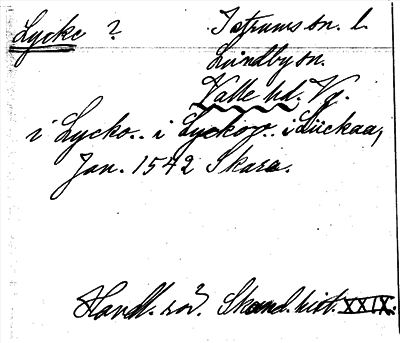 Lycke ? Istrums sn. l.
Lundby sn.
Valle hd. Vg.
i Lycko.. i Lyckop.. i Lückaa,
Jan. 1542 Skara.
Handl. rör. Skand. hist. XXIX.